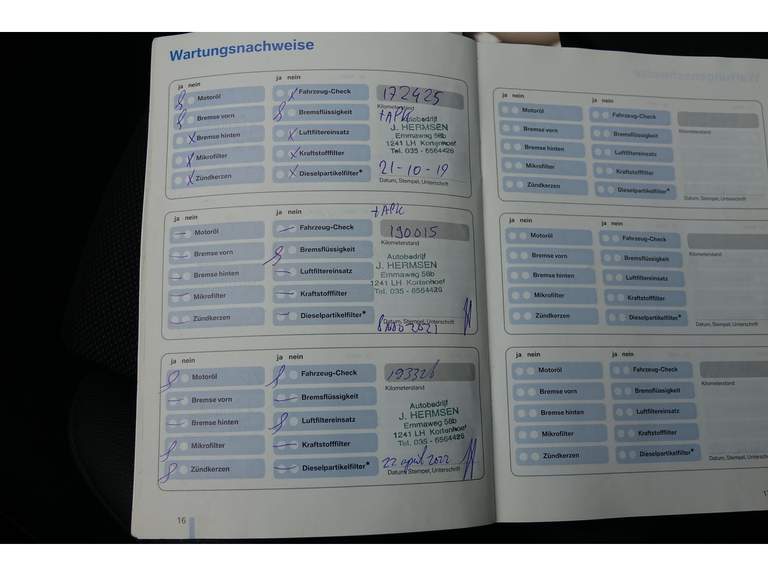 Wartungsnachweise
ja nein
ja nein
172425
Motoröl
Fahrzeug-Check
Kilometerstand
+APK
Bremse vorn
Bremsflüssigkeit
Autobedrijf
J. HERMSEN
Bremse hinten
Luftfiltereinsatz
Emmaweg 58b
1241 LH Kortenhoef
Mikrofilter
Kraftstofffilter
Tel. 035 - 6564426
21-10-19
Zündkerzen
Dieselpartikelfilter*
Datum, Stempel, Unterschrift
+APK
ja nein
ja nein
190015
Motoröl
Fahrzeug-Check
Kilometerstand
Bremse vorn
Bremsflüssigkeit
Autobedrijf
J. HERMSEN
Bremse hinten
Luftfiltereinsatz
Emmaweg 58b
1241 LH Kortenhoef
Mikrofilter
Kraftstofffilter
Tel. 035 - 6564426
Zündkerzen
Dieselpartikelfilter*
Datum, Stempel, Unterschrift
2021
ja nein
ja nein
193328
Motoröl
Fahrzeug-Check
Kilometerstand
Bremse vorn
Bremsflüssigkeit
Autobedrijf
J. HERMSEN
Bremse hinten
Luftfiltereinsatz
Emmaweg 58b
1241 LH Kortenhoef
Mikrofilter
Kraftstofffilter
Tel. 035 - 6564426
22 april 2022
Zündkerzen
Dieselpartikelfilter*
Datum, Stempel, Unterschrift
16
ja nein
ja nein
Motoröl
Fahrzeug-Check
Kilometerstand
Bremse vorn
Bremsflüssigkeit
Bremse hinten
Luftfiltereinsatz
Mikrofilter
Kraftstofffilter
Zündkerzen
Dieselpartikelfilter*
Datum, Stempel, Unterschrift
ja nein
ja nein
Motoröl
Fahrzeug-Check
Kilometerstand
Bremse vorn
Bremsflüssigkeit
Bremse hinten
Luftfiltereinsatz
Mikrofilter
Kraftstofffilter
Zündkerzen
Dieselpartikelfilter*
Datum, Stempel, Unterschrift
ja nein
ja nein
Motoröl
Fahrzeug-Check
Kilometerstand
Bremse vorn
Bremsflüssigkeit
Bremse hinten
Luftfiltereinsatz
Mikrofilter
Kraftstofffilter
Zündkerzen
Dieselpartikelfilter*
Datum, Stempel, Unterschrift